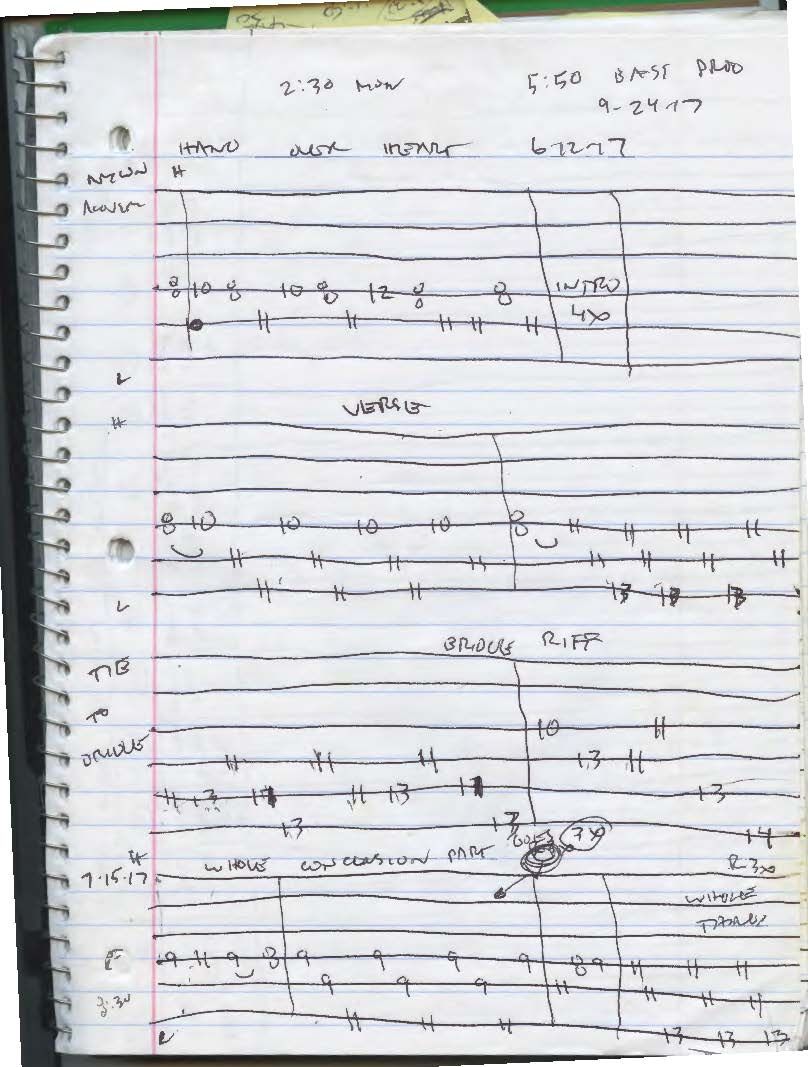 2:30 MON
5:50 BASS PROD
9-24-17
HAND OVER HEART 6-12-17
H
8 10 8 10 8 12 8 8 INTRO
11 11 11 11 11 4X
L
VERSE
H
8 10 10 10 10 8 11 11 11 11
11 11 11 11 11 11 11 11
11 11 11 13 13 13
L
BRIDGE RIFF
TIE
TO
BRIDGE
10 11
11 11 11 13 11
11 13 11 11 13 11 13
13 13 14
GOES 7X
H
WHOLE CONCLUSION PART
R-3X
9-15-17
WHOLE
9 11 9 8 9 9 9 9 8 9 11 11 11
9 9 9 11 11 11 11
2:30
11 11 11 13 13 13
L